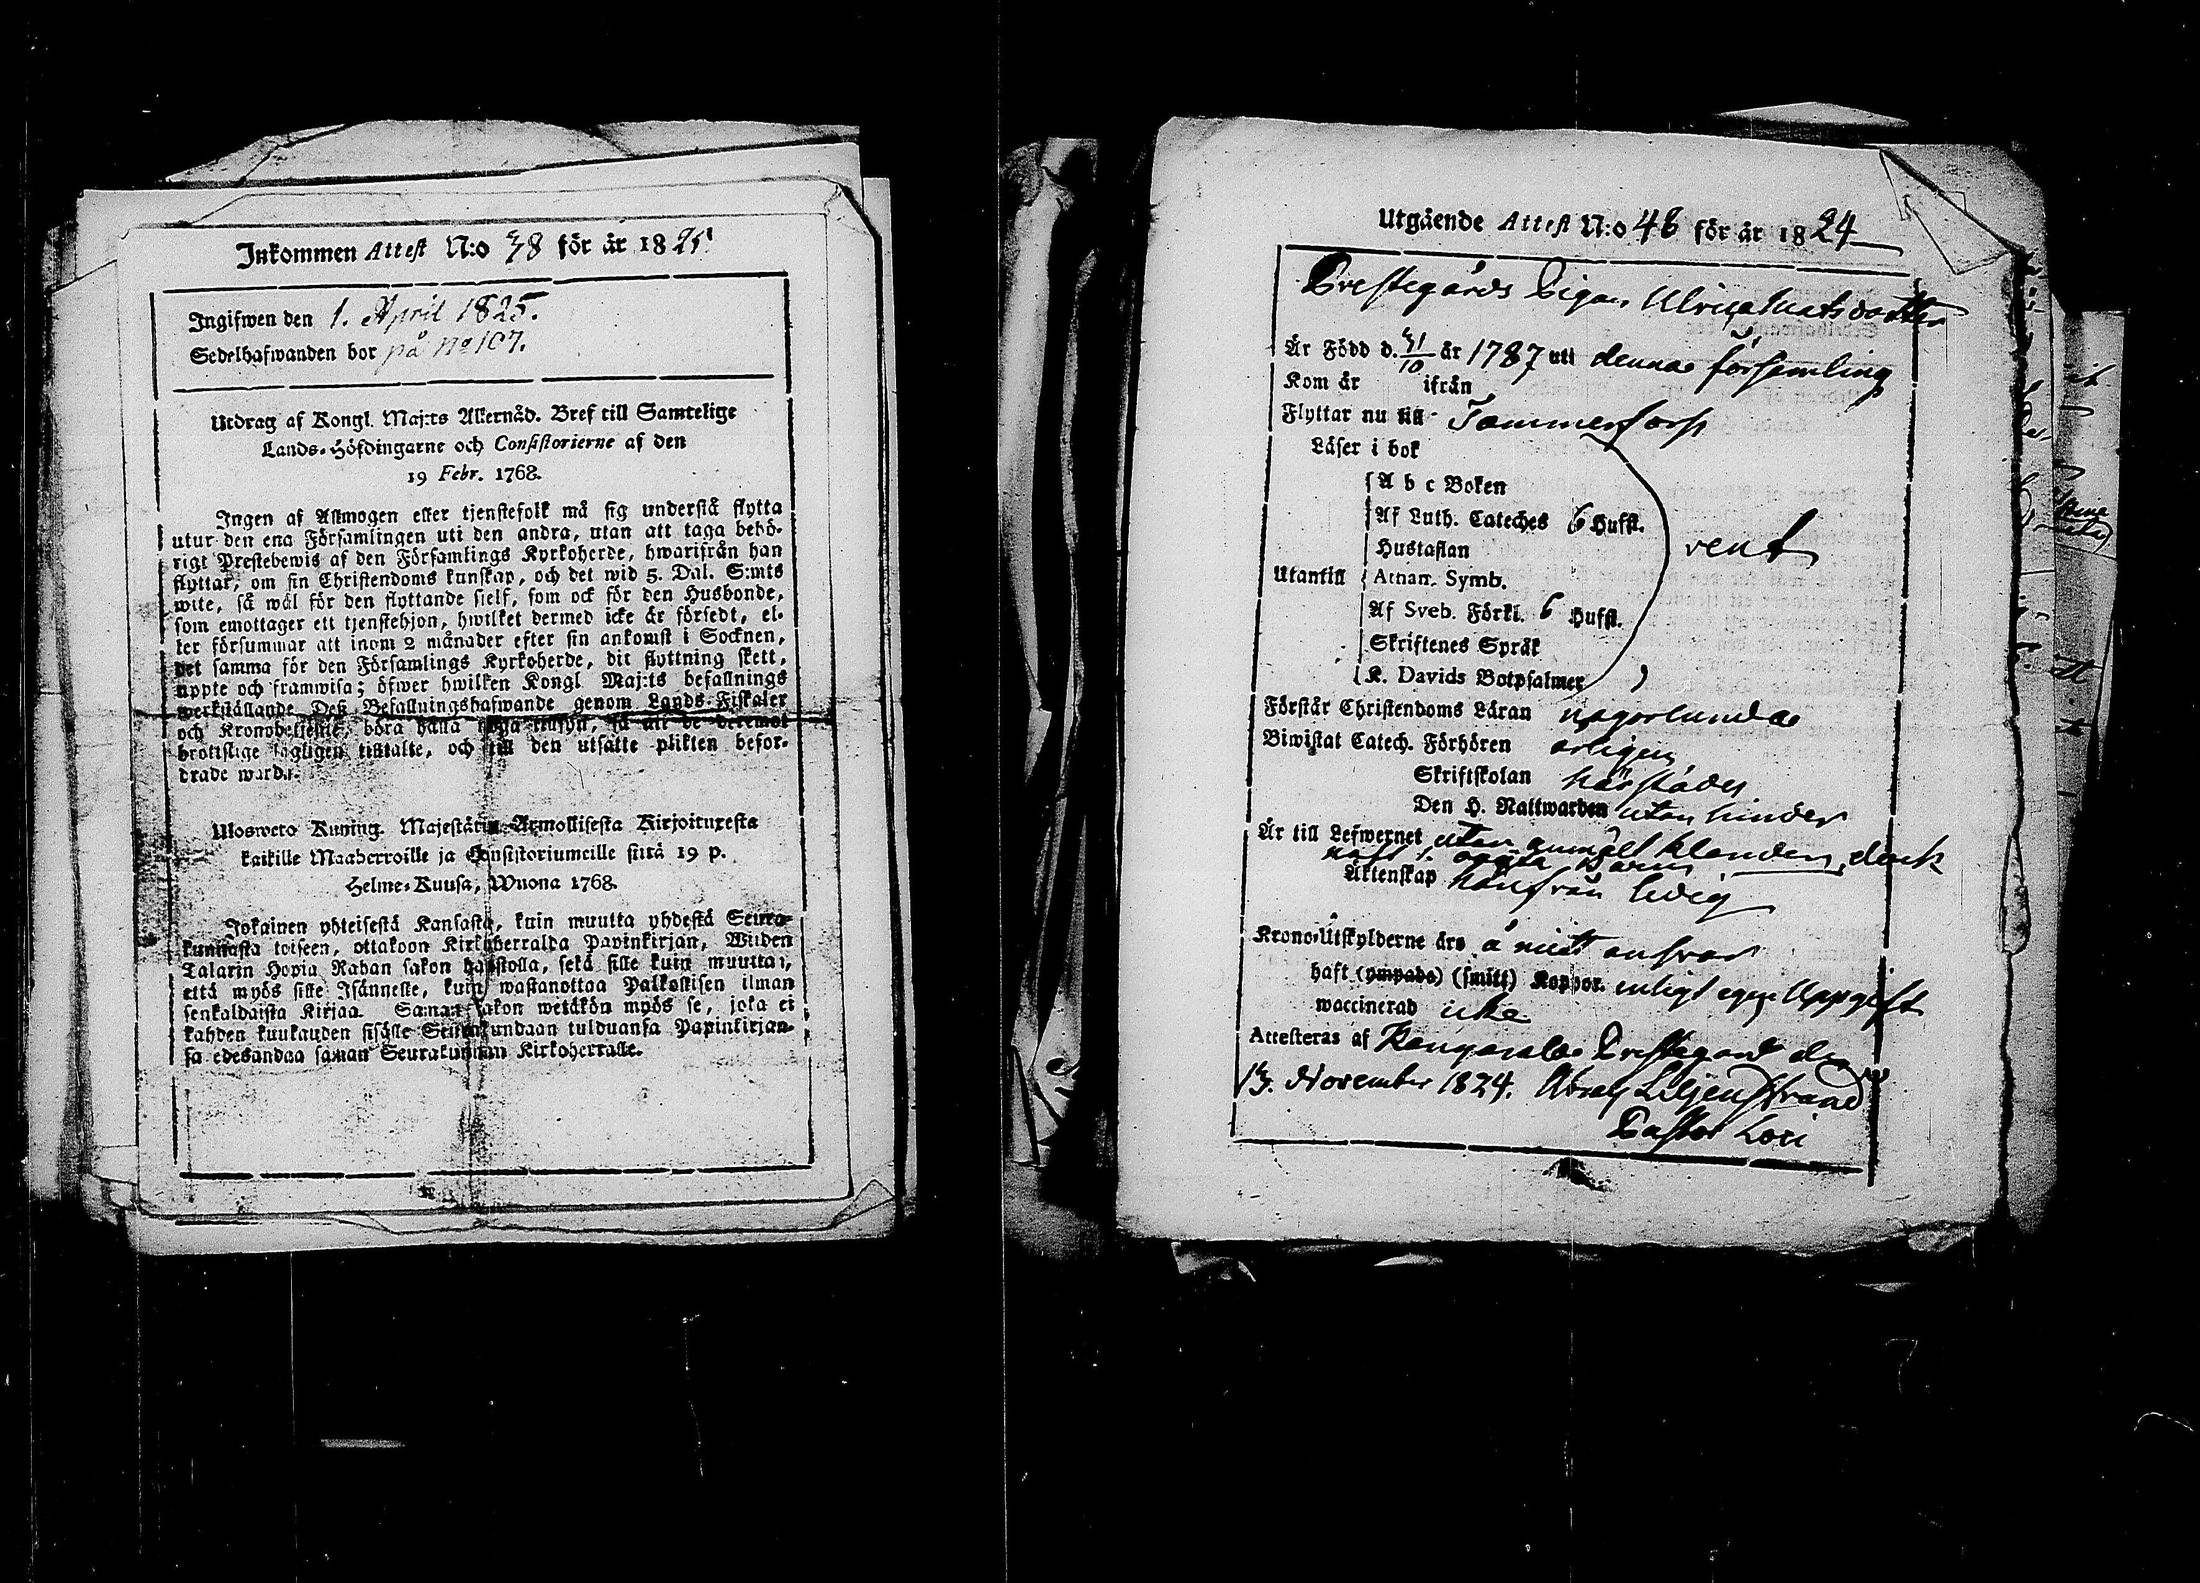 Inkommen Attest N:o 38 för år 1825.
Ingifwen den 1. April 1825.
Sedelhafwanden bor på No 107.
Utdrag af Kongl. Maj:ts Allernåd. Bref till Samtelige
Lands-Höfdingarne och Consistorierne af den
19 Febr. 1768.
Ingen af Allmogen eller tjenstefolk må sig understå flytta
utur den ena Församlingen uti den andra, utan att taga behö-
rigt Prestebewis af den Församlings Kyrkoherde, hwarifrån han
flyttar, om sin Christendoms kunskap, och det wid 5. Dal. S:mts
wite, så wäl för den flyttande sielf, som ock för den Husbonde,
som emottager ett tjenstehjon, hwilket dermed icke är försedt, el-
ler försummar att inom 2 månader efter sin ankomst i Socknen,
det samma för den Församlings Kyrkoherde, dit flyttning skett,
uppte och framwisa; öfwer hwilken Kongl Maj:ts befallnings
werkställande Deß Befallningshafwande genom Lands-Fiskaler
och Kronobetjente, böra hålla noga tillsyn, så att de deremot
brottslige lagligen tilltalte, och till den utsatte plikten befor-
drade warda.
Ulosweto Kuning. Majestätin Armollisesta Kirjoituxesta
kaikille Maaherroille ja Consistoriumeille siitä 19 p.
Helme-Kuusa, Wuona 1768.
Jokainen yhteisestä Kansasta, kuin muutta yhdestä Seura-
kunnasta toiseen, ottakoon Kirkkoherralda Papinkirjan, Wiiden
Talarin Hopia Rahan sakon haastolla, sekä sille kuin muuttaa,
että myös sille Isännelle, kuin wastanottaa Palkollisen ilman
senkaldaista Kirjaa. Saman sakon wetäkön myös se, joka ei
kahden kuukauden sisälle Seurakundaan tulduansa Papinkirjan-
sa edesandaa saman Seurakunnan Kirkoherralle.
Utgående Attest N:o 48 för år 1824
Prestegårds Pigan Ulrica Matsdotter
Är Född d. 31/10 år 1787 uti denna församling
Kom år ifrån
Flyttar nu till Tammerfors
Läser i bok
A b c Boken
Af Luth. Cateches 6 Hufst.
Hustaflan rent
Utantill Athan. Symb.
Af Sveb. Förkl. 6 Hufst.
Skriftenes Språk
K. Davids Botpsalmer
Förstår Christendoms Läran någorlunda
Biwistat Catech. Förhören årligen
Skriftskolan härstädes
Den H. Nattwarden utan hinder
Är till Lefwernet utan anmält klander,
haft 1. oägta Barn
Äktenskap härifrån ledig
Krono-Utskylderne äro å mitt answar
haft (ympade) (smitt) Koppor. enligt egen Uppgift
waccinerad icke
Attesteras af Kangasala Prestegård den
13. November 1824. Abrah Liljenstrand
Pastor Loci